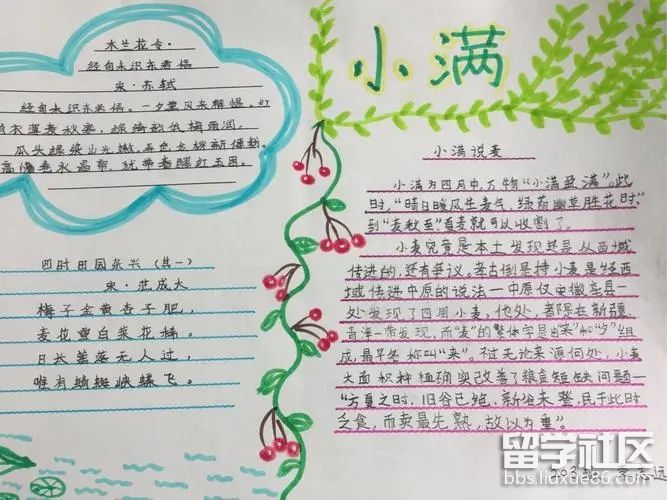 木兰花令·
经旬未识东君信
宋·苏轼
经旬未识东君信。一夕薰风来解愠。红
绡衣薄麦秋寒，绿绮韵低梅雨润。
瓜头绿染山光嫩。弄色金桃新傅粉。
高慵卷水晶帘，犹带春醪红玉困。
四时田园杂兴（其一）
宋·范成大
梅子金黄杏子肥，
麦花雪白菜花稀。
日长篱落无人过，
唯有蜻蜓蛱蝶飞。
小满
小满说麦
小满为四月中，万物“小满盈满”。此
时，“晴日暖风生麦气，绿荫幽草胜花时”，
到“麦秋至”夏麦就可以收割了。
小麦究竟是本土发现还是从西域
传进的，还有争议。考古倒是持小麦是经西
域传进中原的说法—中原仅安徽亳县一
处发现了四周小麦，他处，都限在新疆
青海一带发现，而“麦”的繁体字是由“来”和“夕”组
成，最早名称叫“来”。不过无论来源何处，小麦
大面积种植确实改善了粮食短缺问题—
“方夏之时，旧谷已绝，新谷未登，民于此时
乏食，而卖最先熟，故以为重”。
503班
留学社区
bbs.liuxue86.com